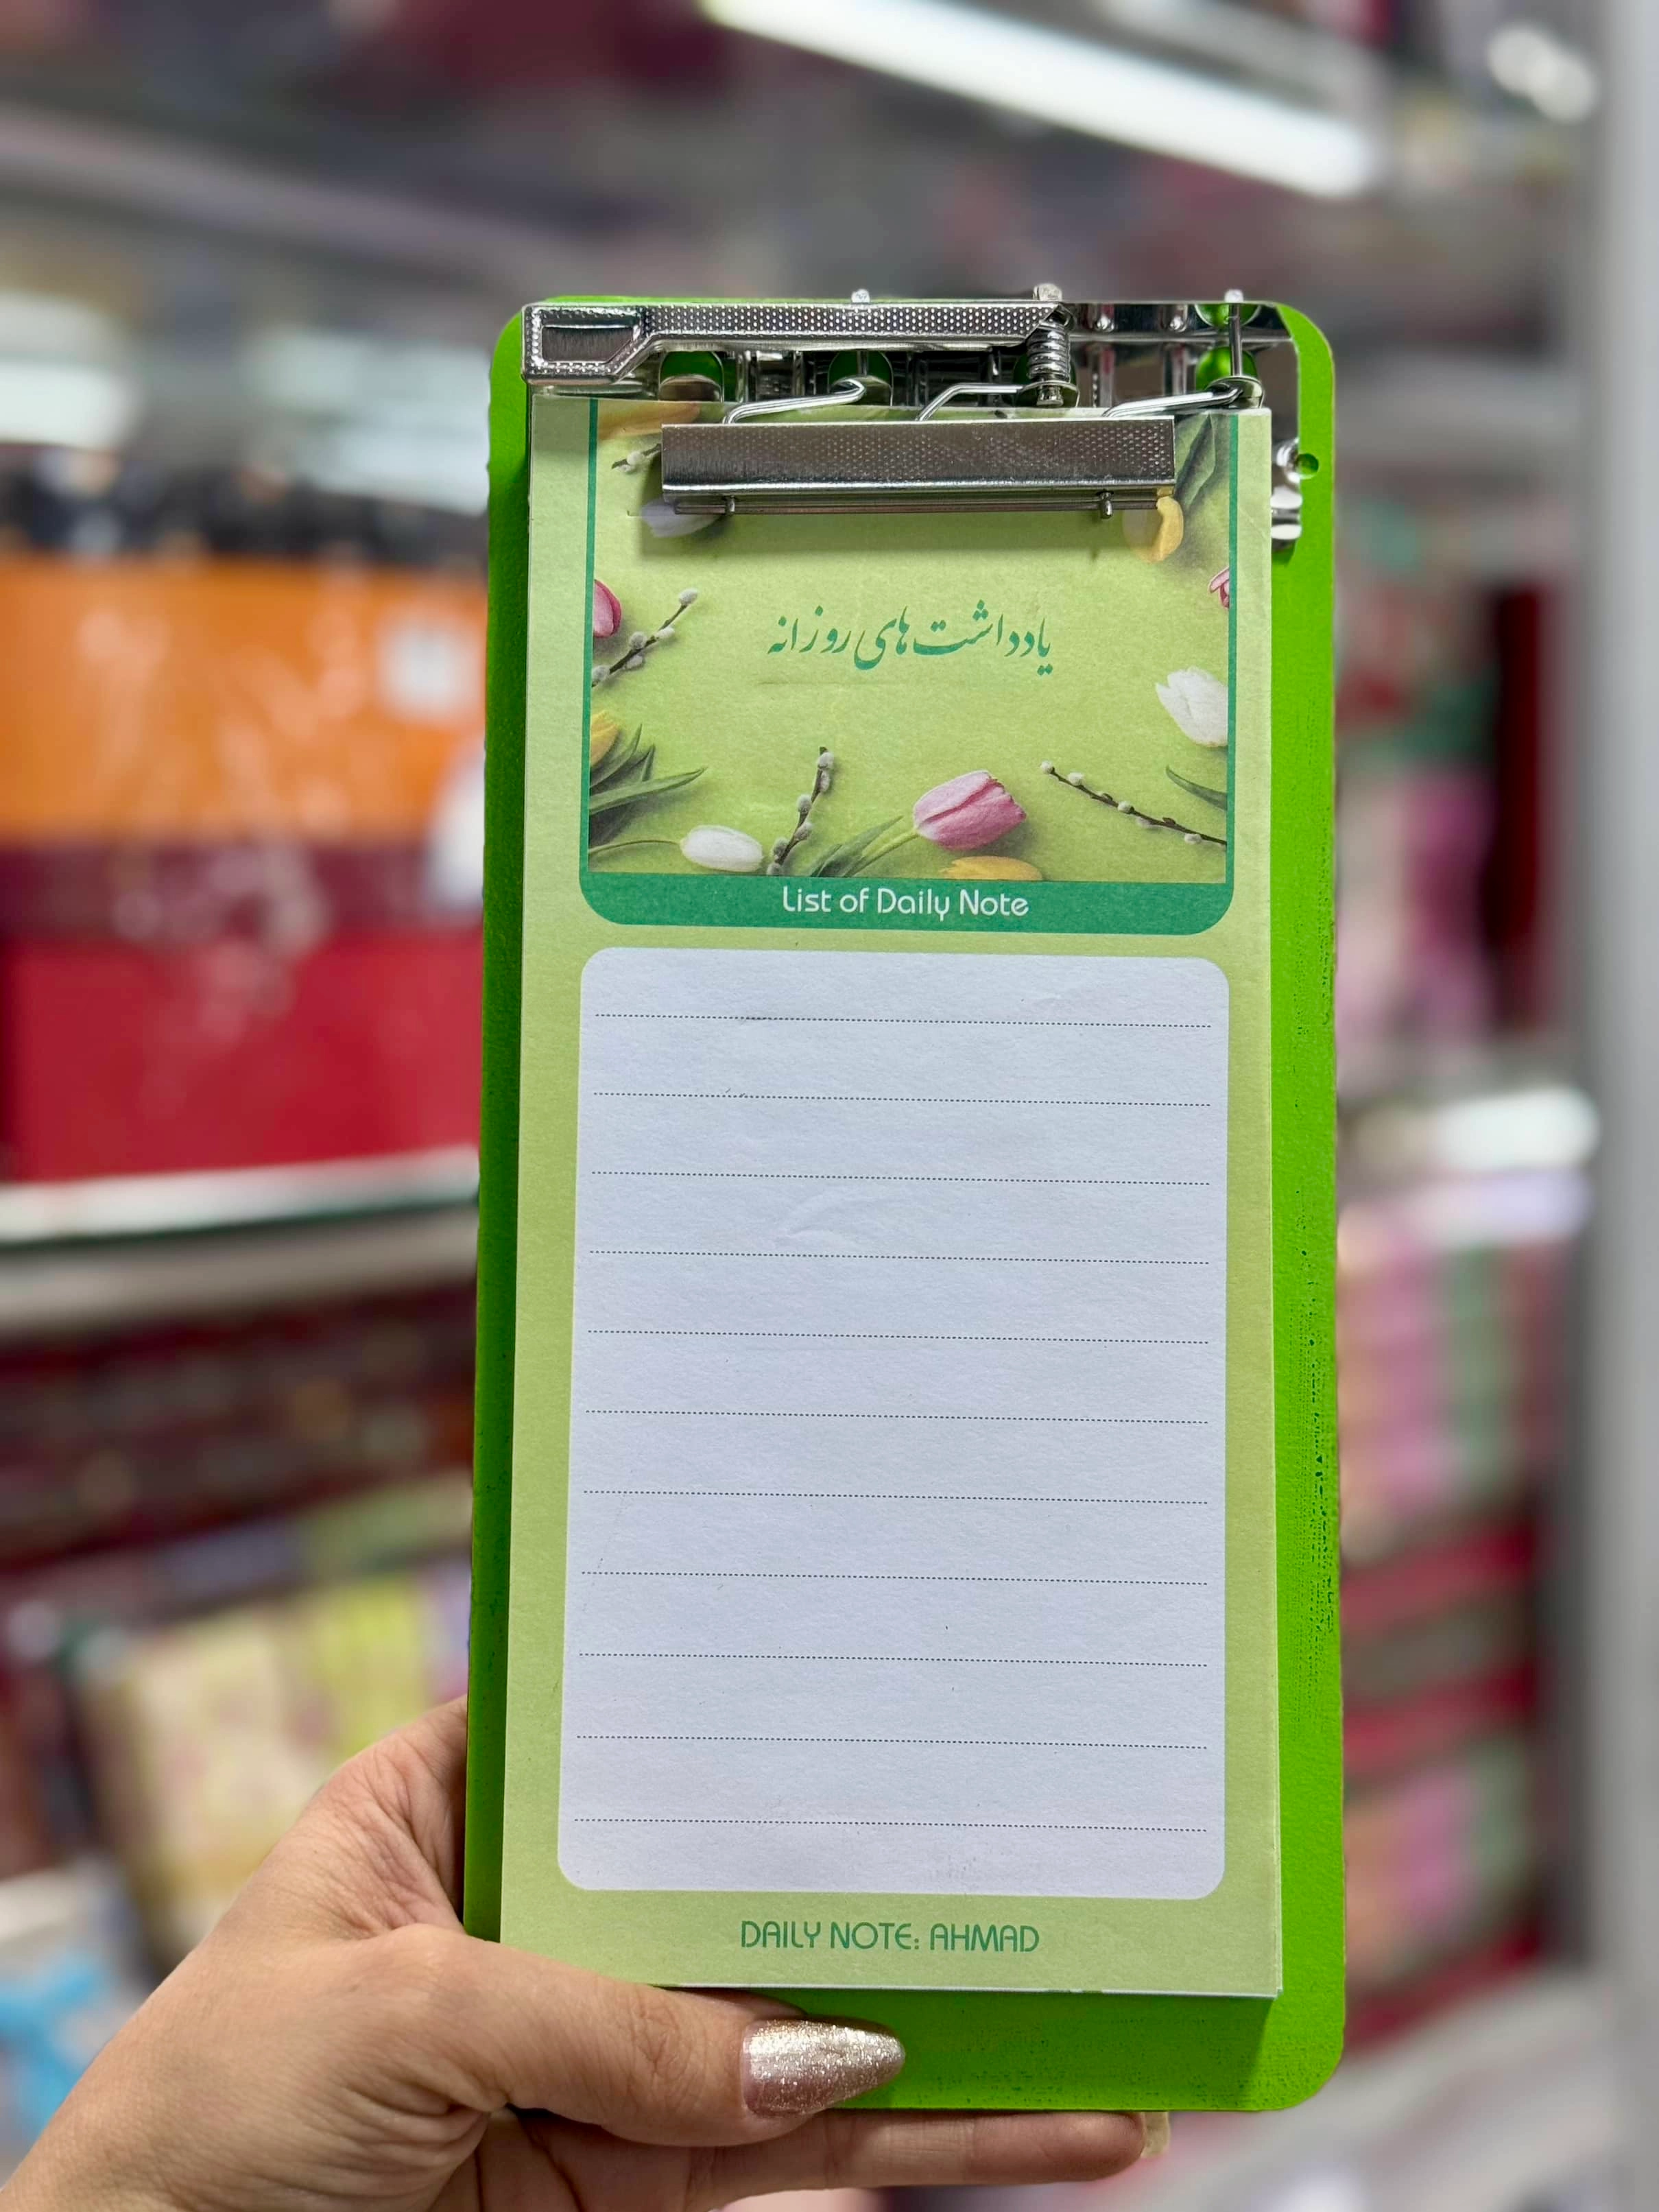 یادداشت‌های روزانه
List of Daily Note
DAILY NOTE: AHMAD